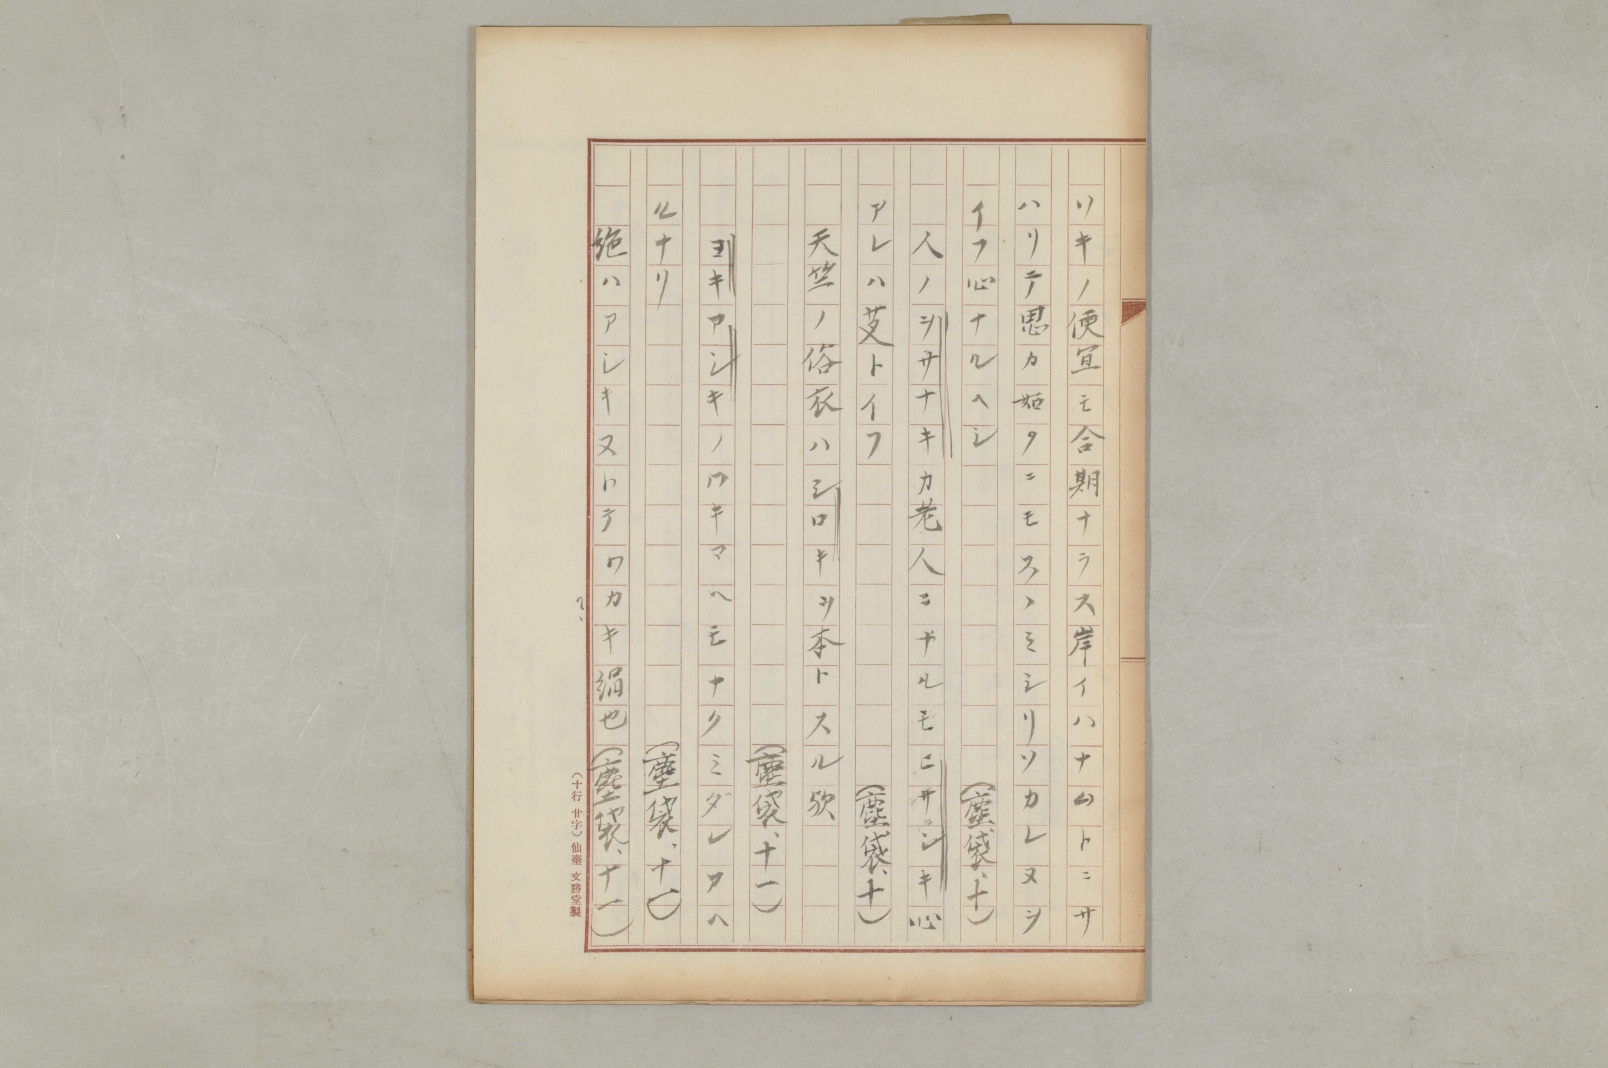 ソキノ便宜モ合期ナラス岸イハナムトニサ
ハリテ思カ如クニモスヽミシリソカレヌヲ
イフ心ナルヘシ（塵袋、十）
人ノヲサナキカ老人ニナルモヒサシキ心
アレハ艾トイフ（塵袋、十）
天竺ノ俗衣ハシロキヲ本トスル歟
（塵袋、十一）
ヨキアシキノワキマヘモナクミダレアヘ
ルナリ（塵袋、十一）
絁ハアシキヌトテワカキ絹也（塵袋、十一）
（十行廿字）仙臺文勝堂製